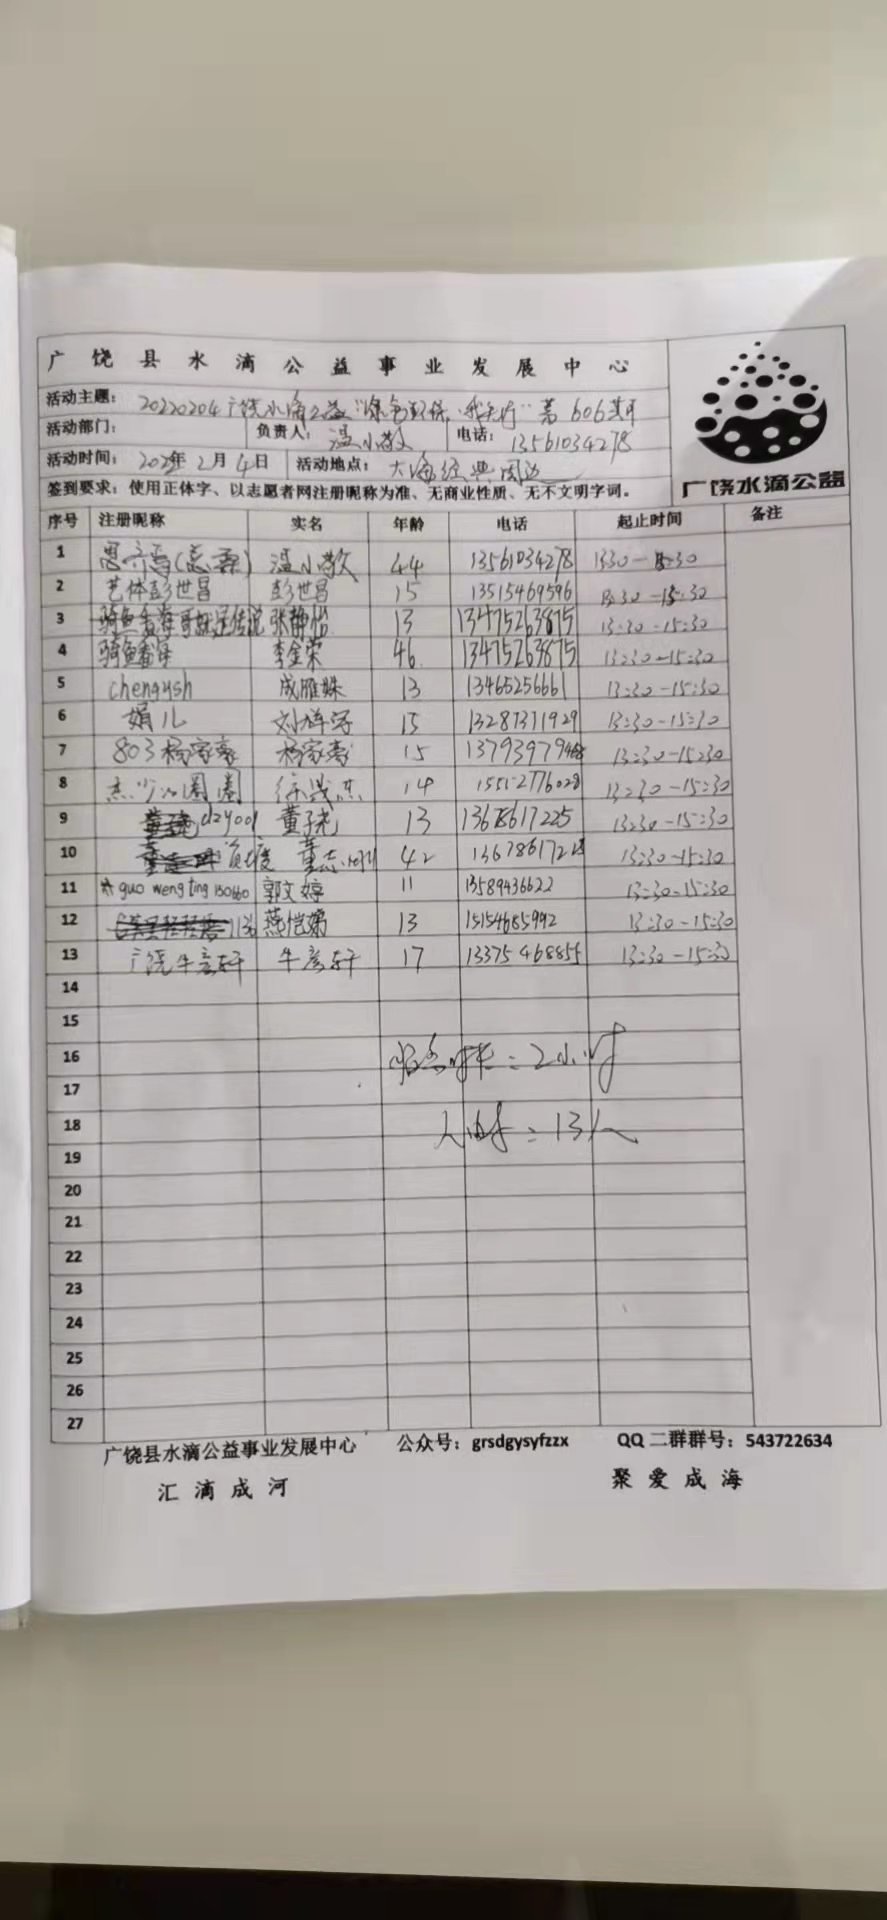 广饶县水滴公益事业发展中心
活动主题： 20220204广饶水滴公益"绿色环保·我先行"第606期
活动部门： 负责人：温小敏 电话：13561034278
活动时间：2022年2月4日 活动地点：大海经典周边
签到要求：使用正体字、以志愿者网注册昵称为准、无商业性质、无不文明字词。
广饶水滴公益
序号 注册昵称 实名 年龄 电话 起止时间 备注
1 44 13561034278 13:30-15:30
2 艺体彭世昌 彭世昌 15 13515469596 13:30-15:30
3 张静怡 13 13475263875 13:30-15:30
4 骑鱼 李金荣 46 13475263875 13:30-15:30
5 chengysh 成雁姝 13 13465256661 13:30-15:30
6 娟儿 15 13287371929 13:30-15:30
7 803杨家豪 杨家豪 15 13793979 13:30-15:30
8 14 15512776028 13:30-15:30
9 董子尧 13 13678617225 13:30-15:30
10 董志刚 42 13:30-15:30
11 guo weng ting 郭文婷 11 13589436622 13:30-15:30
12 13 15154685992 13:30-15:30
13 广饶牛彦轩 牛彦轩 17 13375468855 13:30-15:30
14
15
16
时长：2小时
17
18
：13人
19
20
21
22
23
24
25
26
27
广饶县水滴公益事业发展中心 公众号：grsdgysyfzzx QQ二群群号：543722634
汇滴成河 聚爱成海